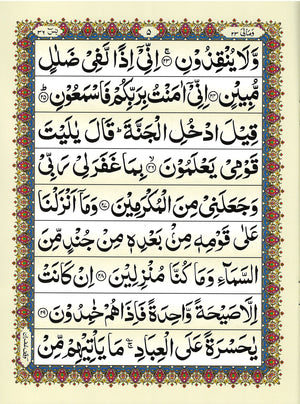 يٰسٓ ٣٦ ٥ وَمَالِیَ ٢٣
وَّلَا يُنْقِذُوْنِ ﴿٢٣﴾ اِنِّيْٓ اِذًا لَّفِيْ ضَلٰلٍ
مُّبِيْنٍ ﴿٢٤﴾ اِنِّيْٓ اٰمَنْتُ بِرَبِّكُمْ فَاسْمَعُوْنِ ﴿٢٥﴾
قِيْلَ ادْخُلِ الْجَنَّةَ ؕ قَالَ يٰلَيْتَ
قَوْمِيْ يَعْلَمُوْنَ ﴿٢٦﴾ بِمَا غَفَرَ لِيْ رَبِّيْ
وَجَعَلَنِيْ مِنَ الْمُكْرَمِيْنَ ﴿٢٧﴾ وَمَآ اَنْزَلْنَا
عَلٰى قَوْمِهٖ مِنْۢ بَعْدِهٖ مِنْ جُنْدٍ مِّنَ
السَّمَآءِ وَمَا كُنَّا مُنْزِلِيْنَ ﴿٢٨﴾ اِنْ كَانَتْ
اِلَّا صَيْحَةً وَّاحِدَةً فَاِذَا هُمْ خٰمِدُوْنَ ﴿٢٩﴾
يٰحَسْرَةً عَلَى الْعِبَادِ ۚ مَا يَاْتِيْهِمْ مِّنْ